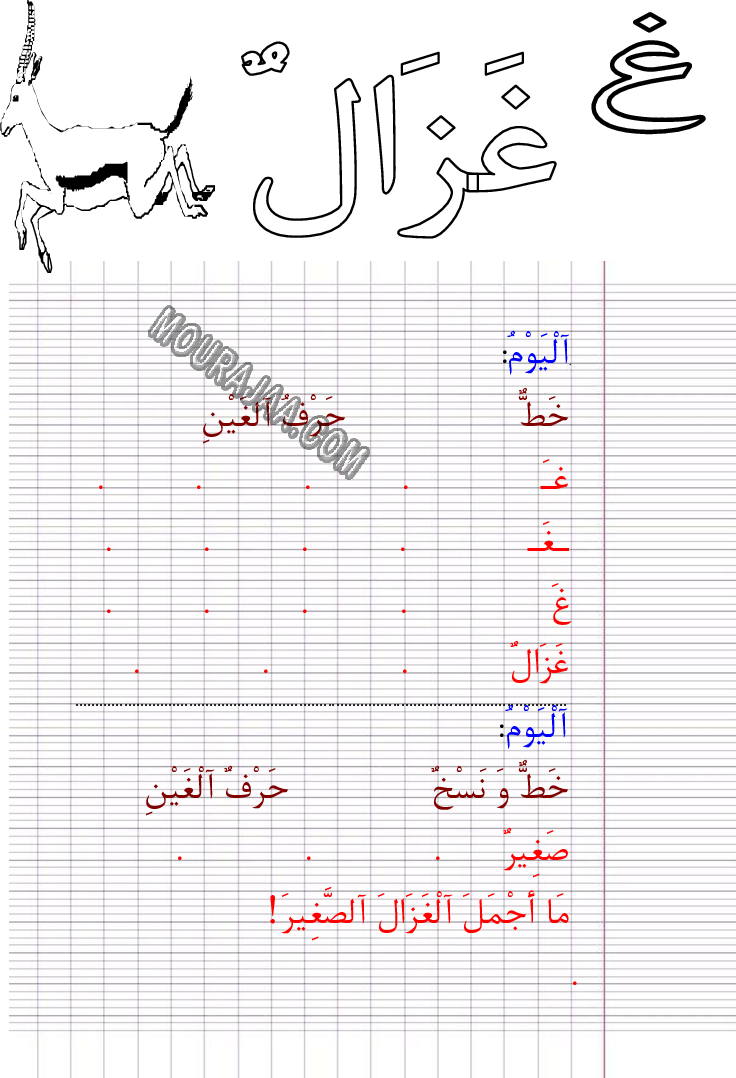 غ
غَزَالٌ
MOURAJAA.COM
آلْيَوْمُ:
خَطٌّ حَرْفُ آلْغَيْنِ
غَـ . . . .
ـغَـ . . . .
غَ . . . .
غَزَالٌ . . .
آلْيَوْمُ:
خَطٌّ وَ نَسْخٌ حَرْفٌ آلْغَيْنِ
صَغِيرٌ . . .
مَا أجْمَلَ آلْغَزَالَ آلصَّغِيرَ!
.